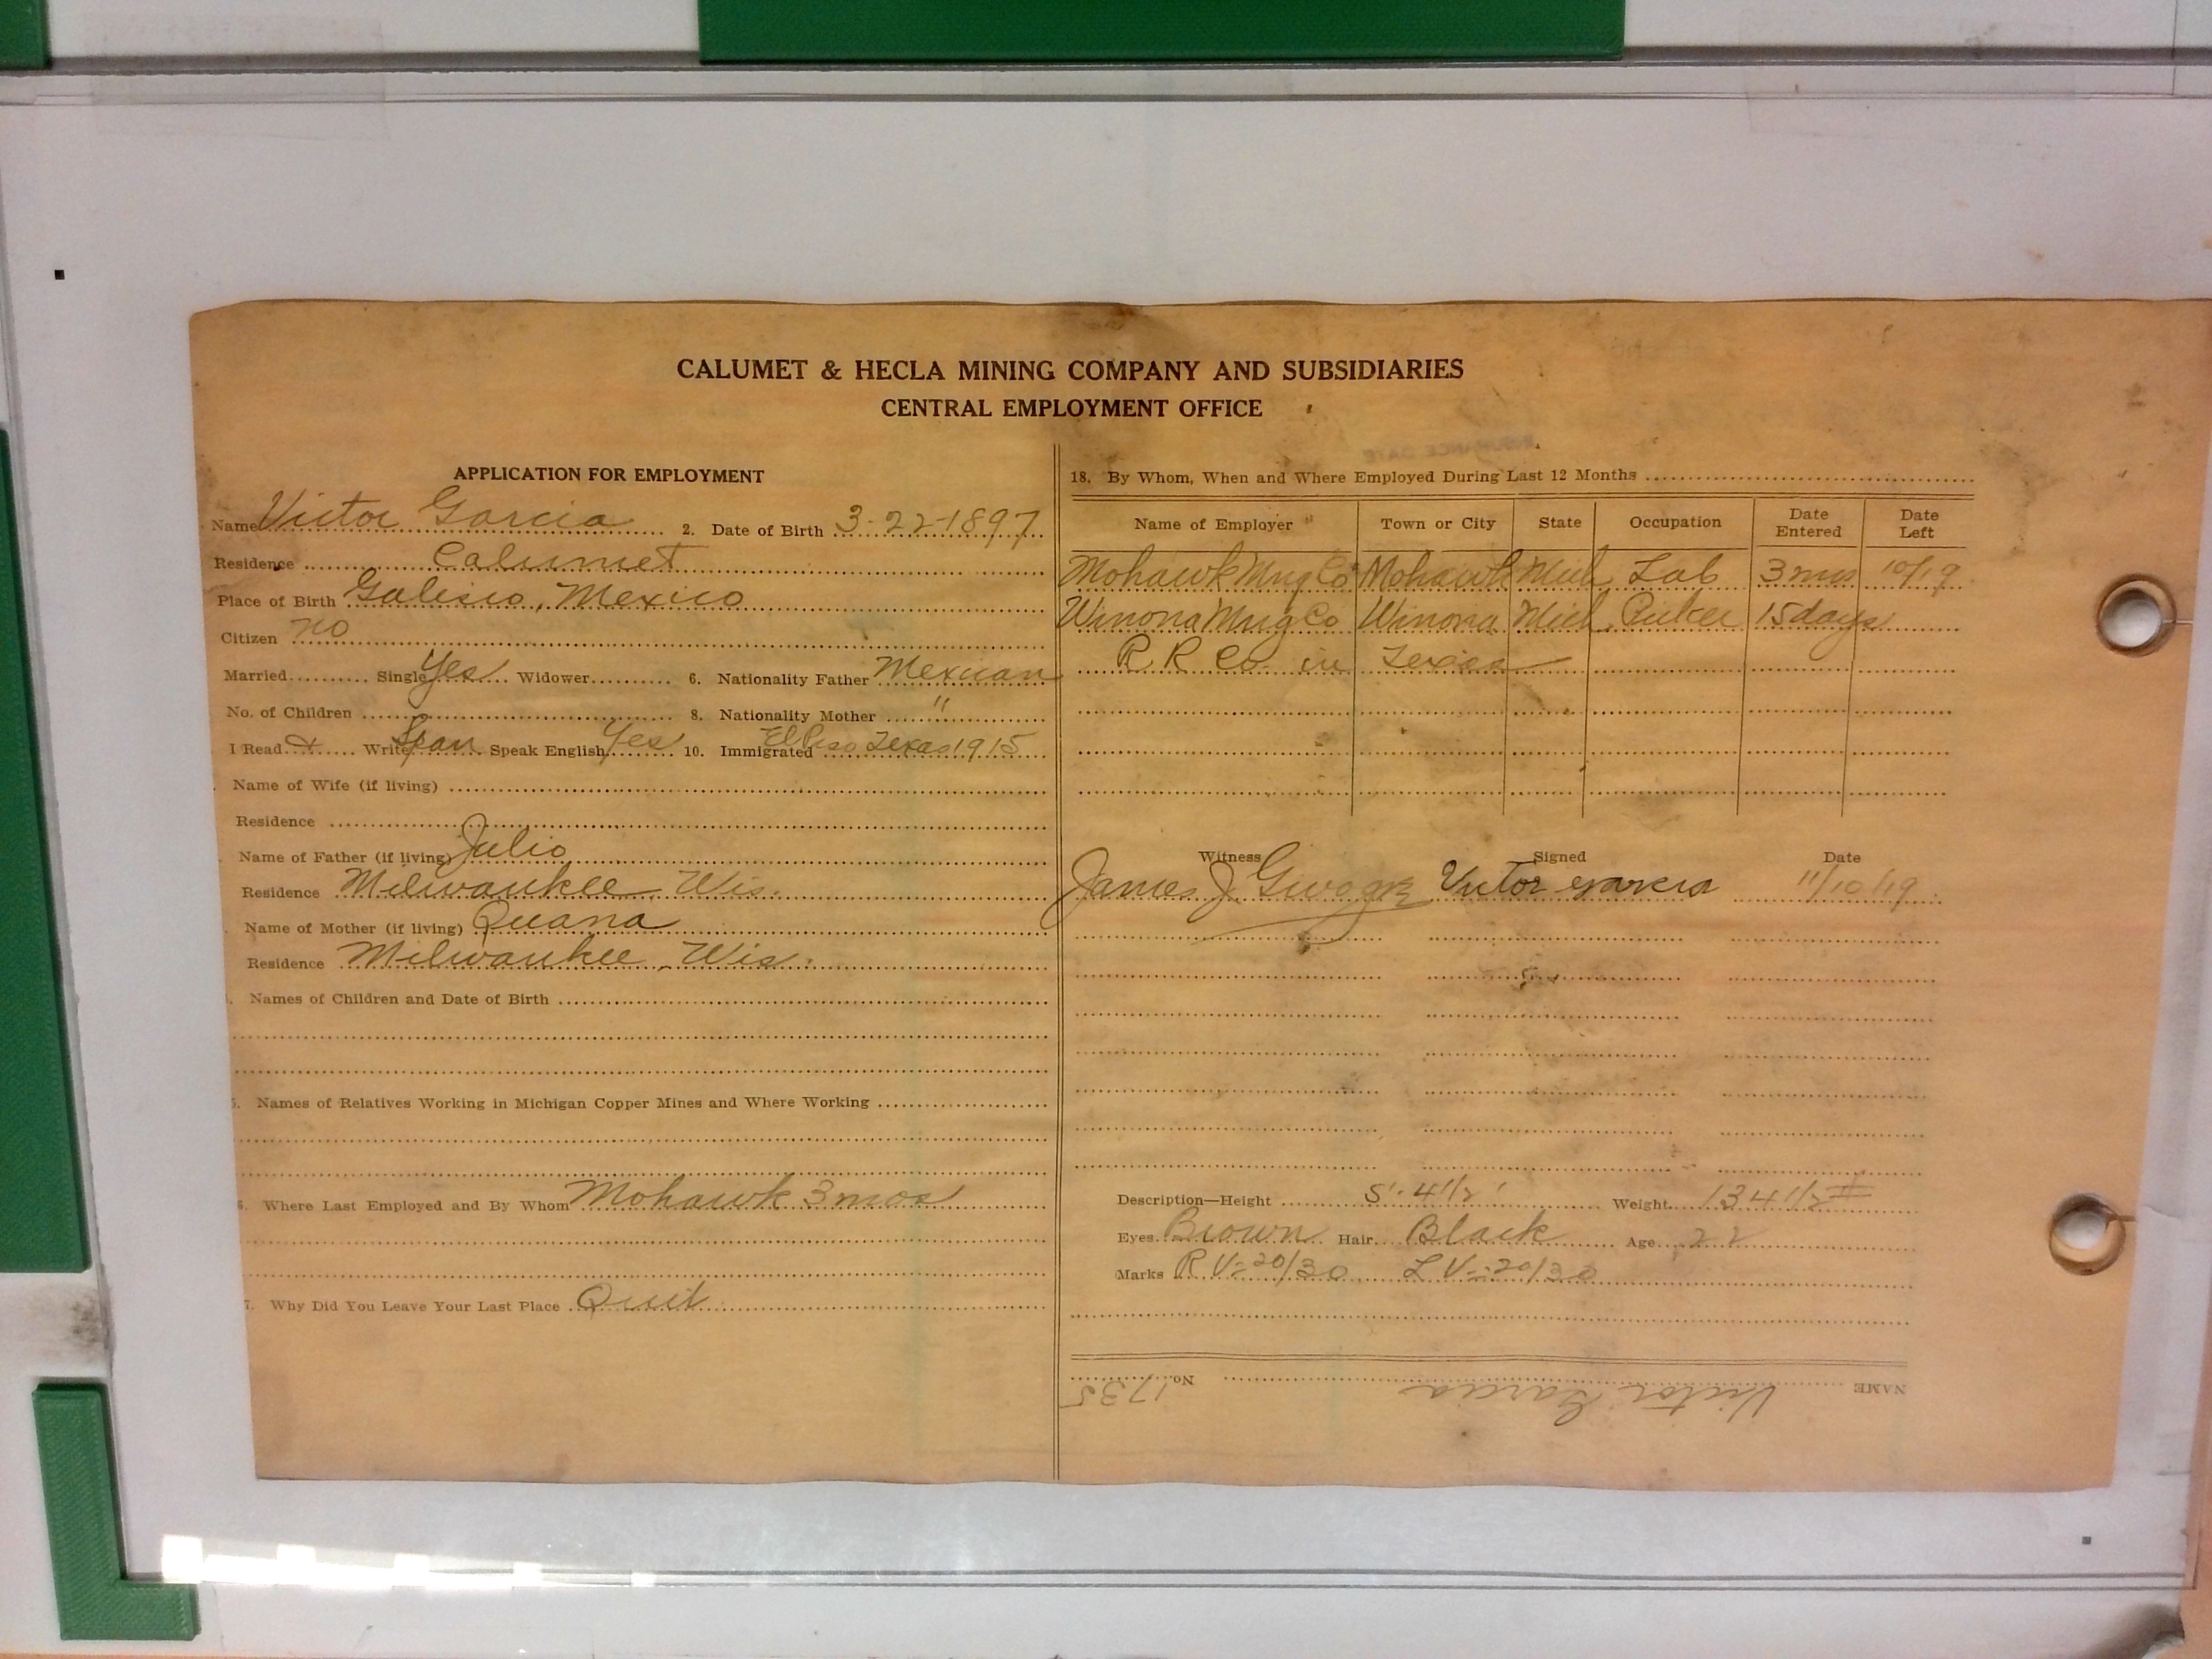 CALUMET & HECLA MINING COMPANY AND SUBSIDIARIES
CENTRAL EMPLOYMENT OFFICE
APPLICATION FOR EMPLOYMENT
Name Victor Garcia 2. Date of Birth 3-22-1897
Residence Calumet
Place of Birth Galisco, Mexico
Citizen no
Married Single Yes Widower 6. Nationality Father Mexican
No. of Children 8. Nationality Mother "
I Read & Write Span Speak English Yes 10. Immigrated El Paso Texas 1915
Name of Wife (if living)
Residence
Name of Father (if living) Julio
Residence Milwaukee, Wis.
Name of Mother (if living) Quana
Residence Milwaukee, Wis.
Names of Children and Date of Birth
5. Names of Relatives Working in Michigan Copper Mines and Where Working
6. Where Last Employed and By Whom Mohawk 3 mos
7. Why Did You Leave Your Last Place Quit
18. By Whom, When and Where Employed During Last 12 Months
Name of Employer Town or City State Occupation Date Entered Date Left
Mohawk Mng Co Mohawk Mich Lab 3 mos 10/19
Winona Mng Co Winona Mich. 15 days
R R Co in Texas
Witness Signed Date
James J. Victor garcia 11/10/19
Description—Height 5'-4 1/2' Weight 134 1/2 #
Eyes Brown Hair Black Age 22
Marks R V=20/30 L V=20/30
NAME Victor Garcia No. 1735
INSURANCE DATE